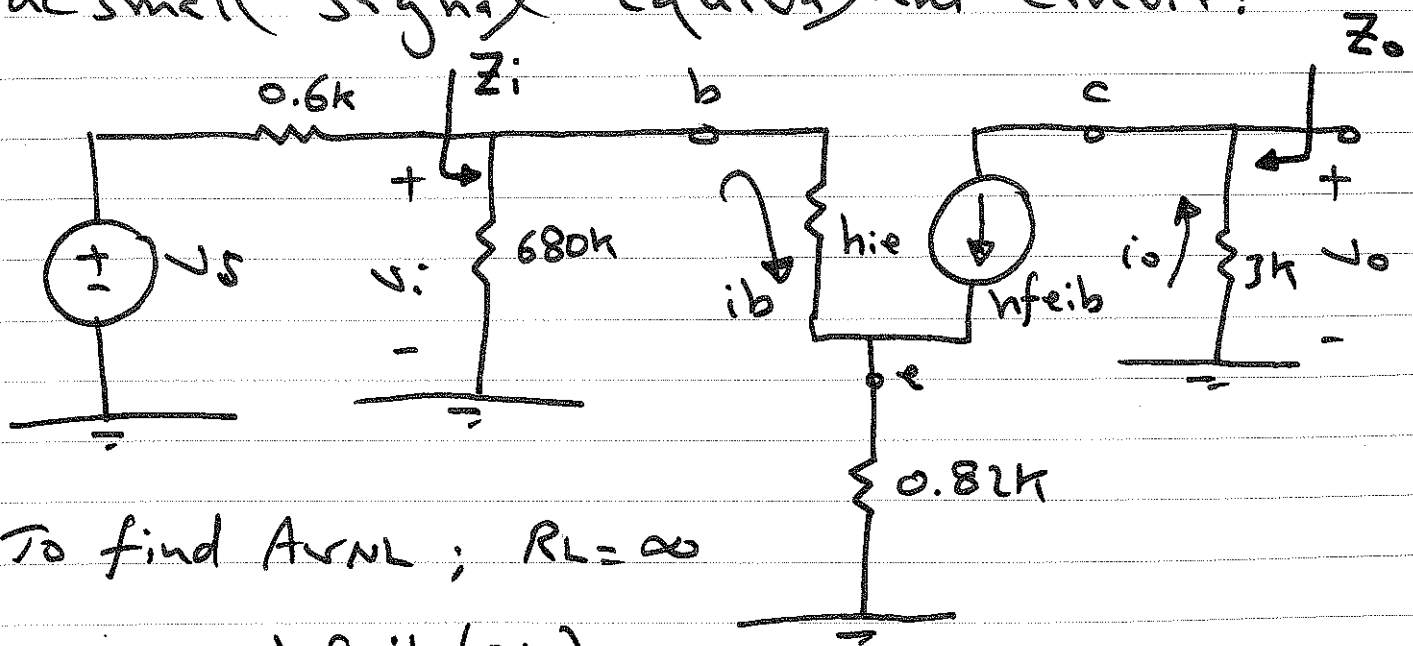 ac small signal equivalent circuit:
Zo
Zi
0.6k
b
c
+
+
+
-
Vs
vi
680k
ib
hie
hfeib
io
3K
Vo
-
-
e
0.82K
To find AvNL ; RL = ∞